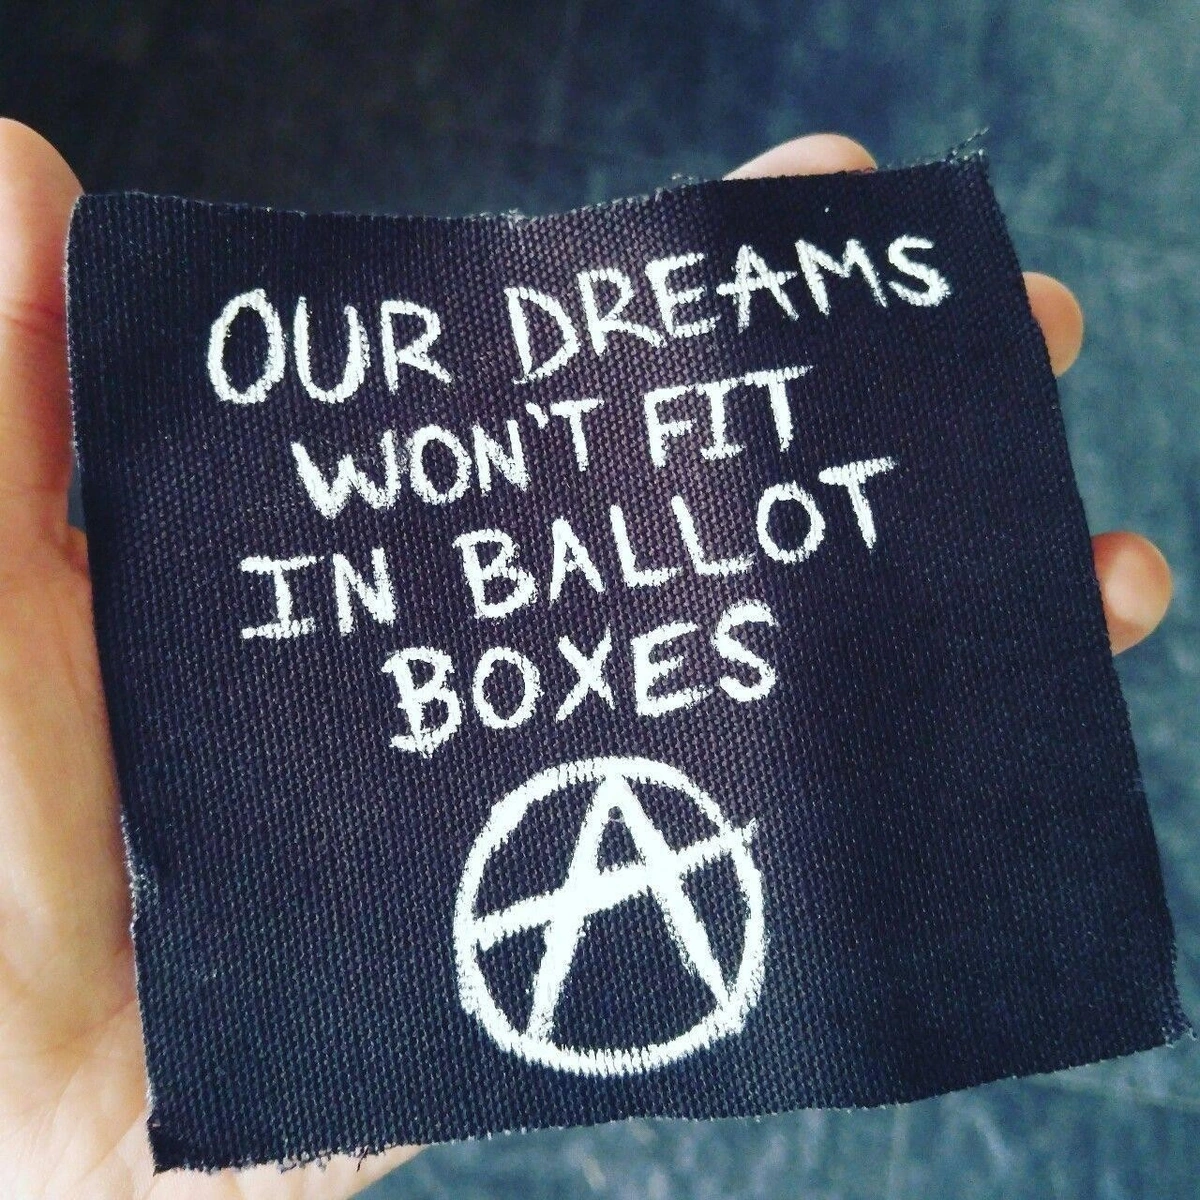 OUR DREAMS
WON'T FIT
IN BALLOT
BOXES
A